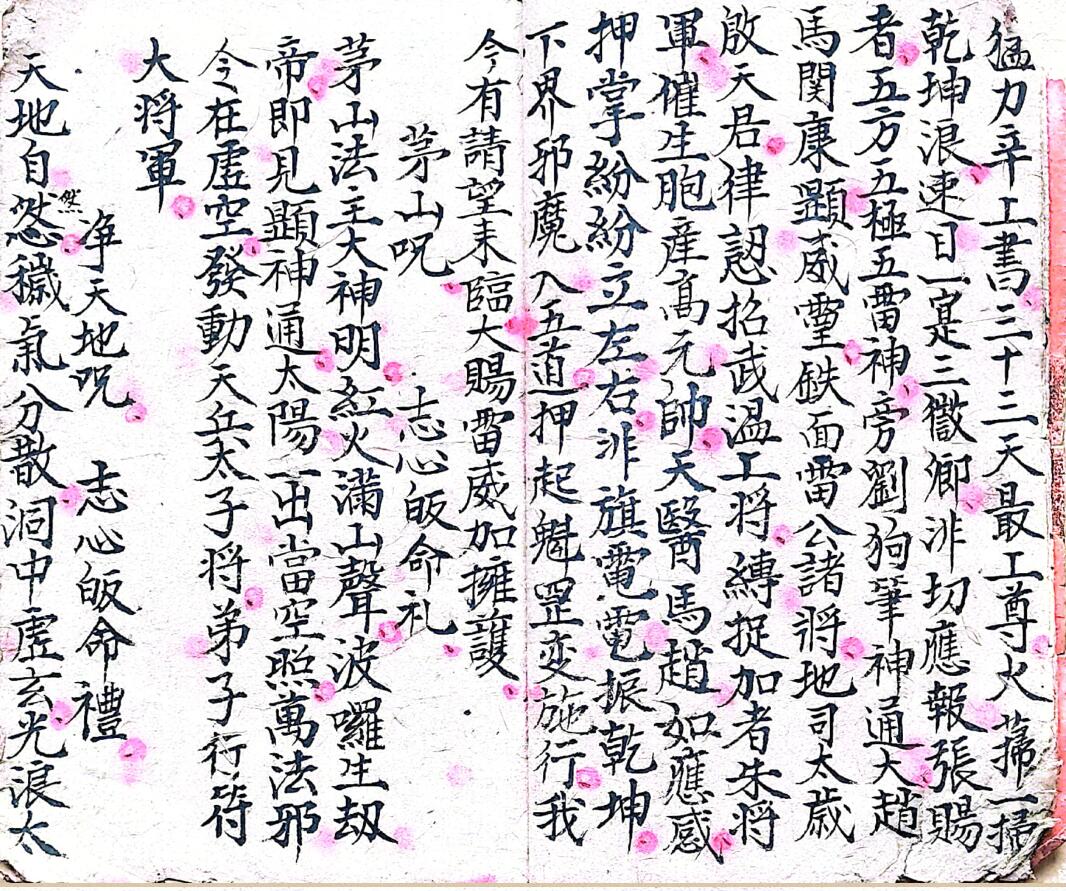 猛力辛上書三十三天最工尊火蕩一掃
乾坤浪速日一寔三獄卿洰切應報張賜
者五方五極五雷神旁劉狗筆神通大趙
馬関康顕威靈鉄面雷公諸將地司太歲
啟天君律認招武温工将縛捉加者朱将
軍催生胞産髙元帥天醫馬趙如應感
押掌紛紛立左右洰旗電電振乾坤
下界邪魔入五道押起魁罡变施行我
今有請望来臨大賜雷威加擁護
茅山咒 志心皈命礼
茅山法主大神明紅火滿山聲波囉生劫
帝即見顕神通太陽一出當空照萬法邪
今在虚空發動天丘太子将弟子行符
大将軍
净天地咒 志心皈命禮
天地自然穢氣分散洞中虚玄光浪太